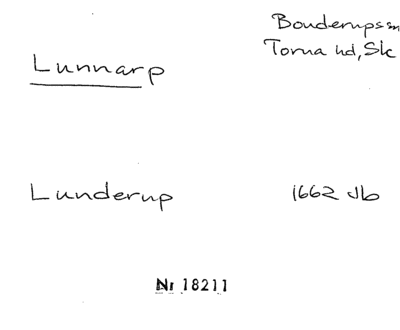 Bonderups sn
Torna hd, Sk
Lunnarp
Lunderup 1662 Jb
Nr 18211